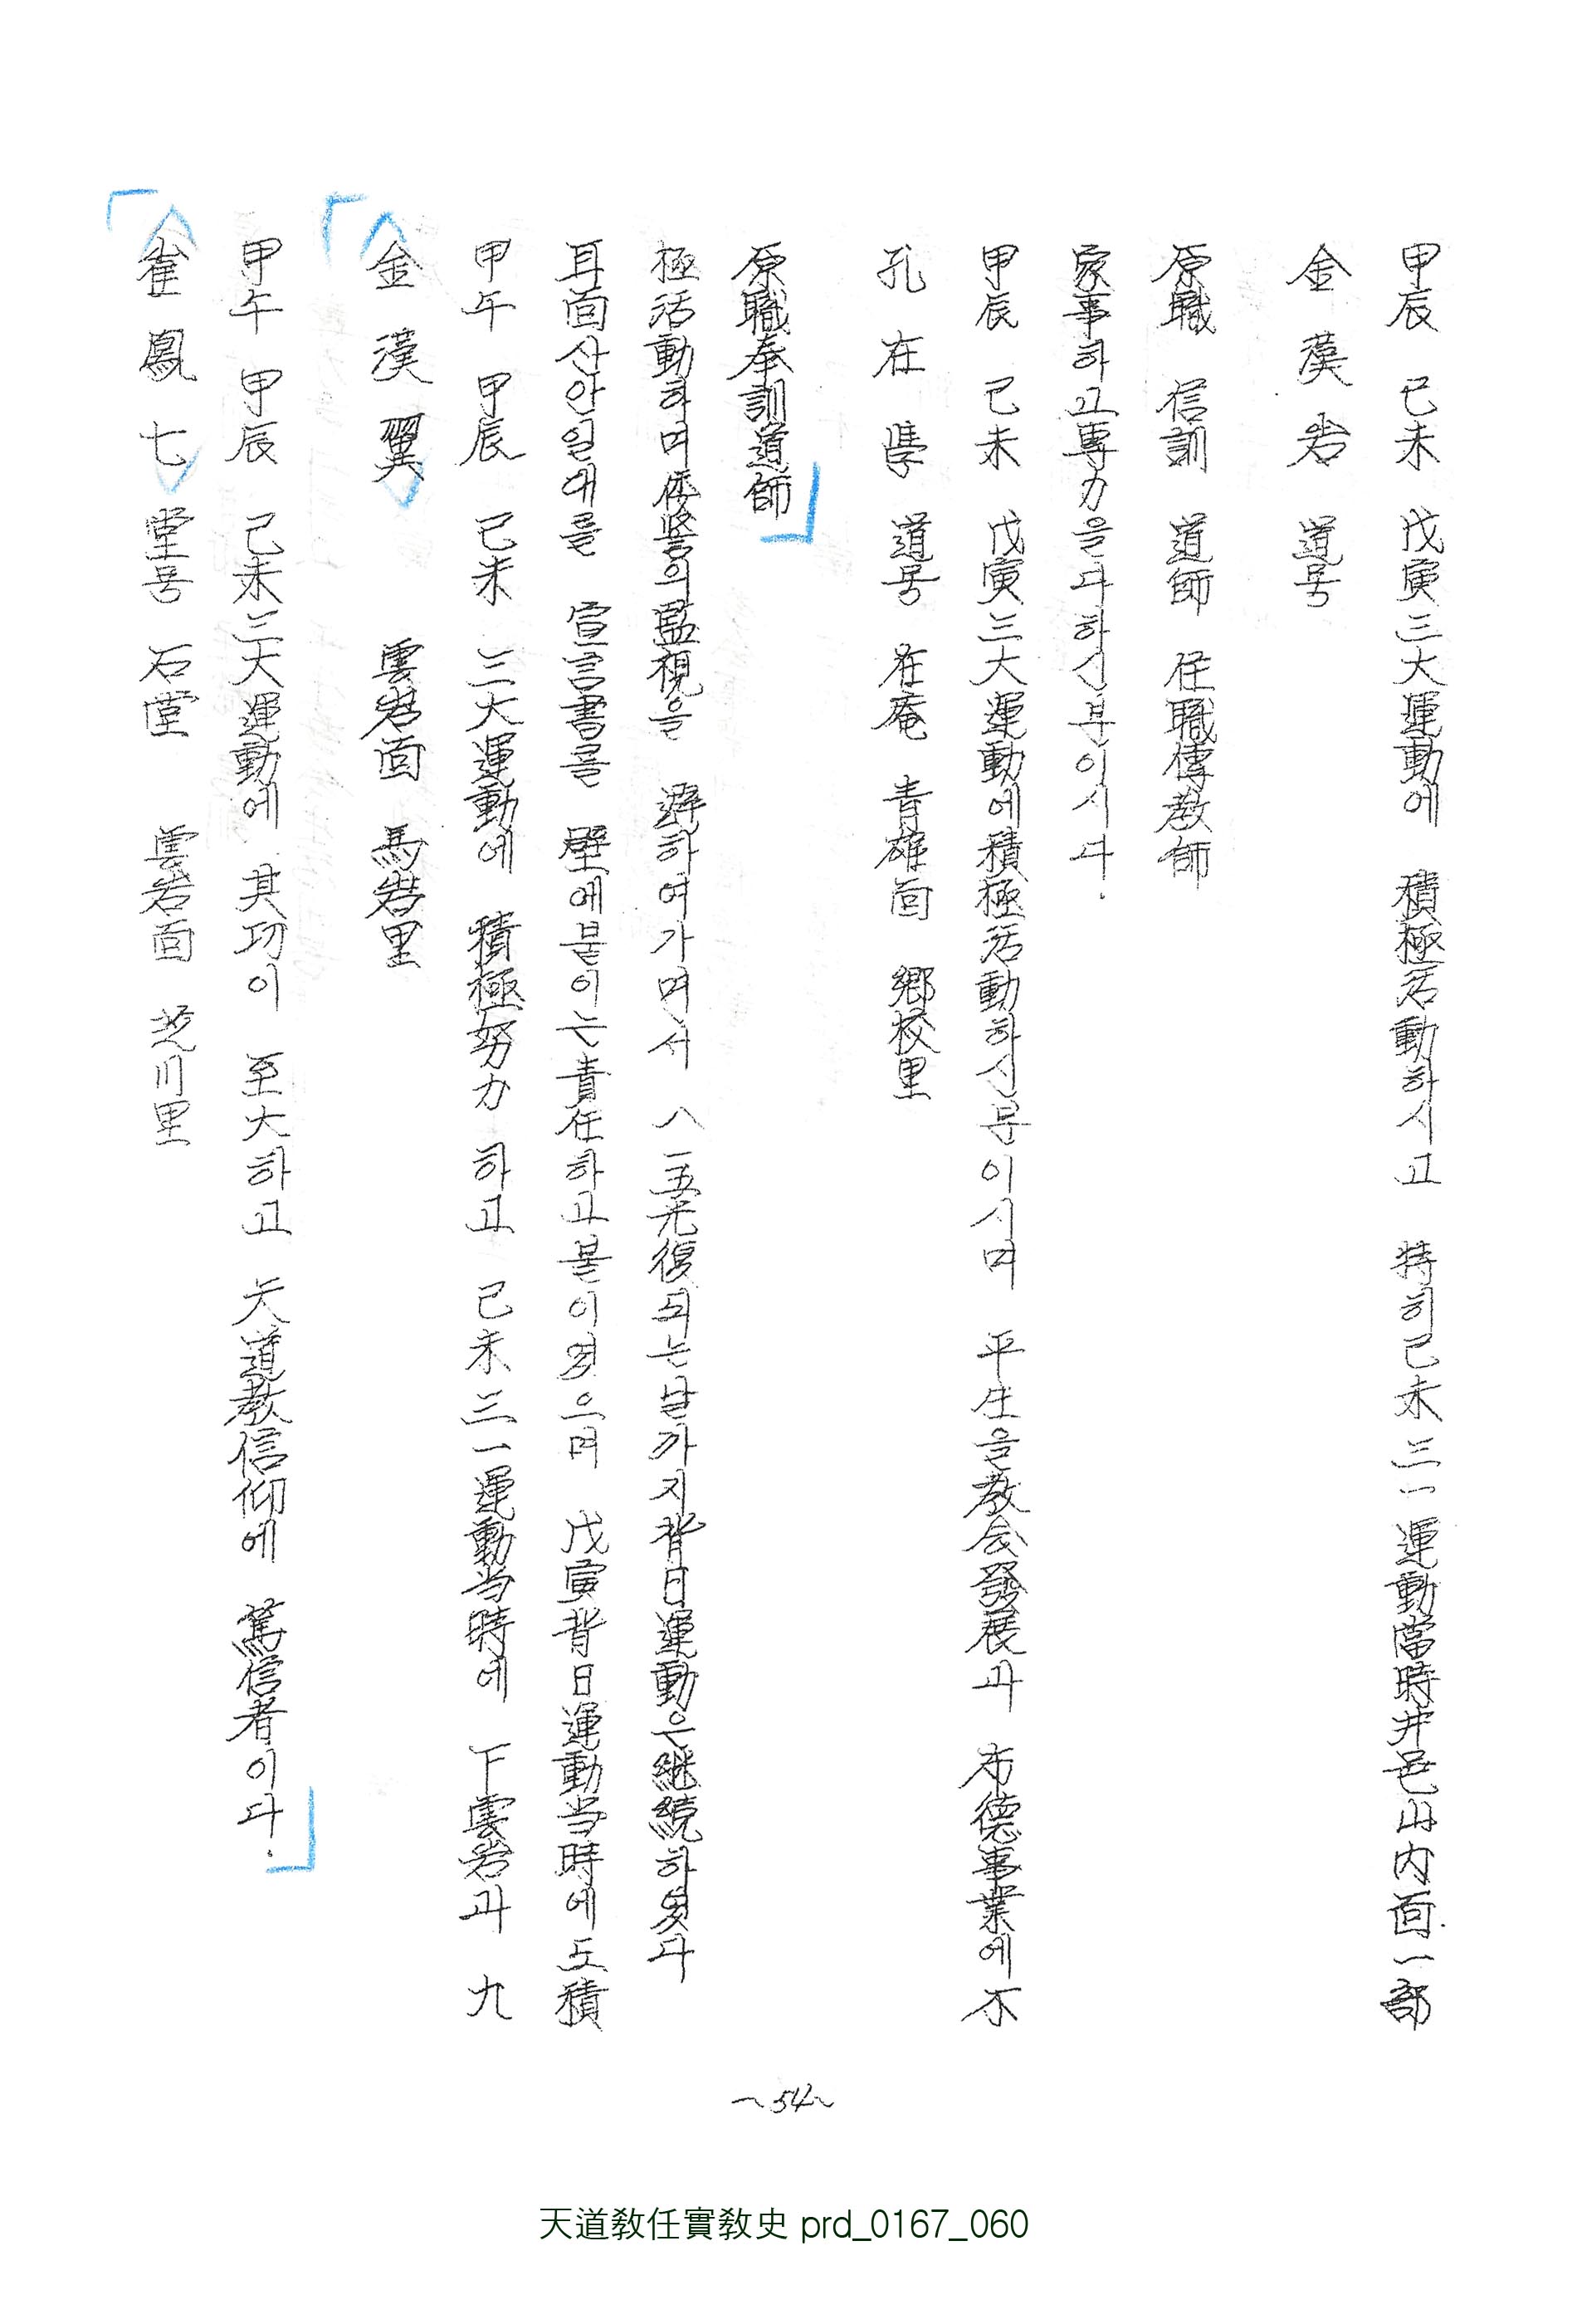 崔鳳七 堂号 石堂 雲岩面 芝川里
甲午 甲辰 己未三大運動에 其功이 至大하고 天道敎信仰에 篤信者이다.
金漢翼 雲岩面 馬岩里
甲午 甲辰 己未 三大運動에 積極努力 하고 己未三一運動当時에 下雲岩과 九
耳面산안일대를 宣言書를 壁에붙이는責任하고붙이였으며 戊寅背日運動当時에도積
極活動하며倭警의監視을 避하여가며서 八一五光復되는날까지背日運動은継続하였다
原職奉訓道師
孔在學 道号 在庵 青雄面 鄕校里
甲辰 己未 戊寅三大運動에積極活動하신분이시며 平生을敎会發展과 布德事業에不
家事하고專力을다하신분이시다.
原職 信訓 道師 任職傳敎師
金漢岩 道号
甲辰 己未 戊寅三大運動에 積極活動하시고 特히己未三一運動當時井邑山内面一部
~54~
天道敎任實敎史 prd_0167_060